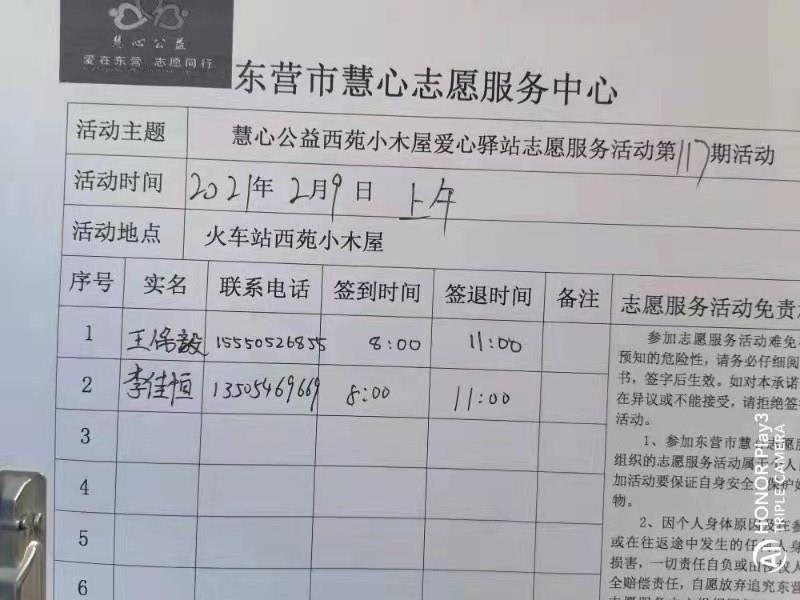 慧心公益
爱在东营 志愿同行
东营市慧心志愿服务中心
活动主题 慧心公益西苑小木屋爱心驿站志愿服务活动第117期活动
活动时间 2021年 2月9日 上午
活动地点 火车站西苑小木屋
序号 实名 联系电话 签到时间 签退时间 备注 志愿服务活动免责
1 王保毅 15550526855 8:00 11:00
2 李佳恒 13505469669 8:00 11:00
3
4
5
6
参加志愿服务活动难免
预知的危险性，请务必仔细阅
书，签字后生效。如对本承诺
在异议或不能接受，请拒绝签
活动。
1、参加东营市慧心志愿服
组织的志愿服务活动属于个人
加活动要保证自身安全
物。
2、因个人身体原因及在参
或在往返途中发生的任何人身
损害，一切责任自负或由
全赔偿责任，自愿放弃追究东营
HONOR Play3
TRIPLE CAMERA